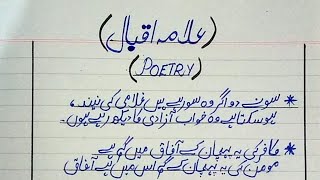 (علامہ اقبال)
(POETRY)
* سونے دو اگر وہ سو رہے ہیں غلامی کی نیند،
ہو سکتا ہے وہ خواب آزادی کا دیکھ رہے ہوں۔
* کافر کی یہ پہچان کے آفاق میں گم ہے
مومن کی یہ پہچان کے گم اس میں ہے آفاق